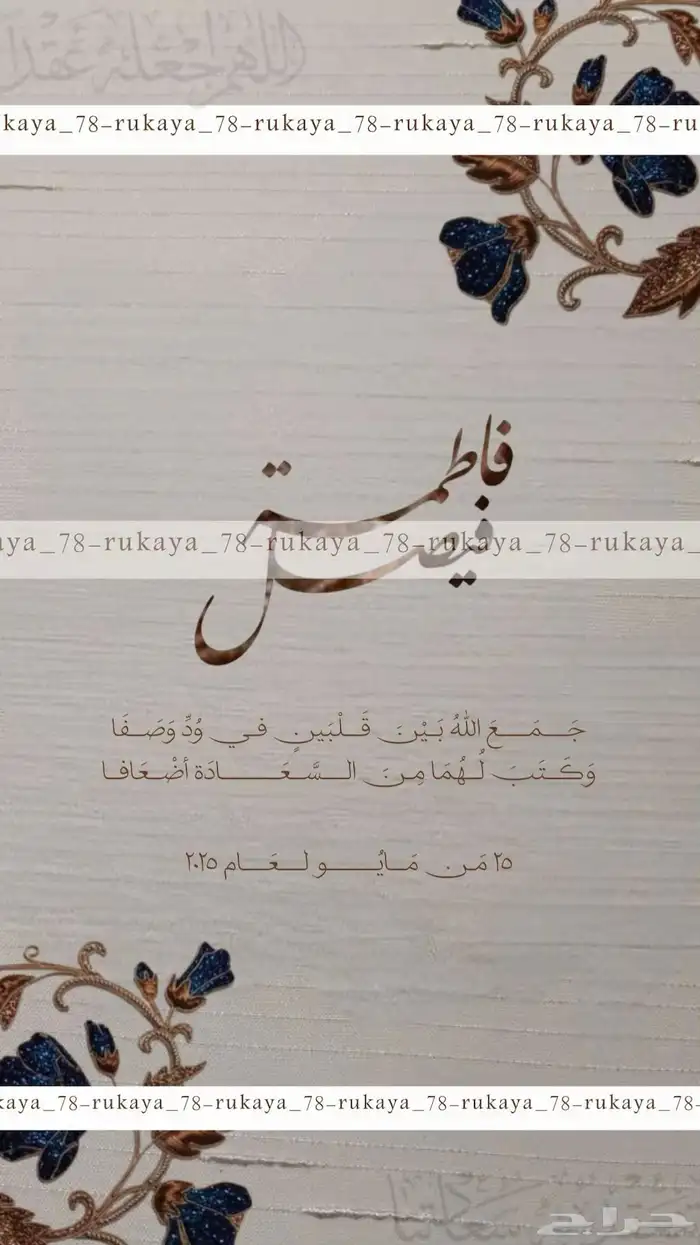 اللهم اجعله عقدا
kaya_78-rukaya_78-rukaya_78-rukaya_78-rukaya_78-ru
فاطمة
aya_78-rukaya_78-rukaya_78-rukaya_78-rukaya_
فيصل
جَـمَـعَ اللهُ بَيْنَ قَـلْبَينِ في وُدٍّ وَصَـفَا
وَكَـتَبَ لَهُمَا مِنَ الـسَّعَـادَة أضْعَافا
٢٥ مَن مَـايُـو لـعَـام ٢٠٢٥
kaya_78-rukaya_78-rukaya_78-rukaya_78-rukaya_78-
حراج